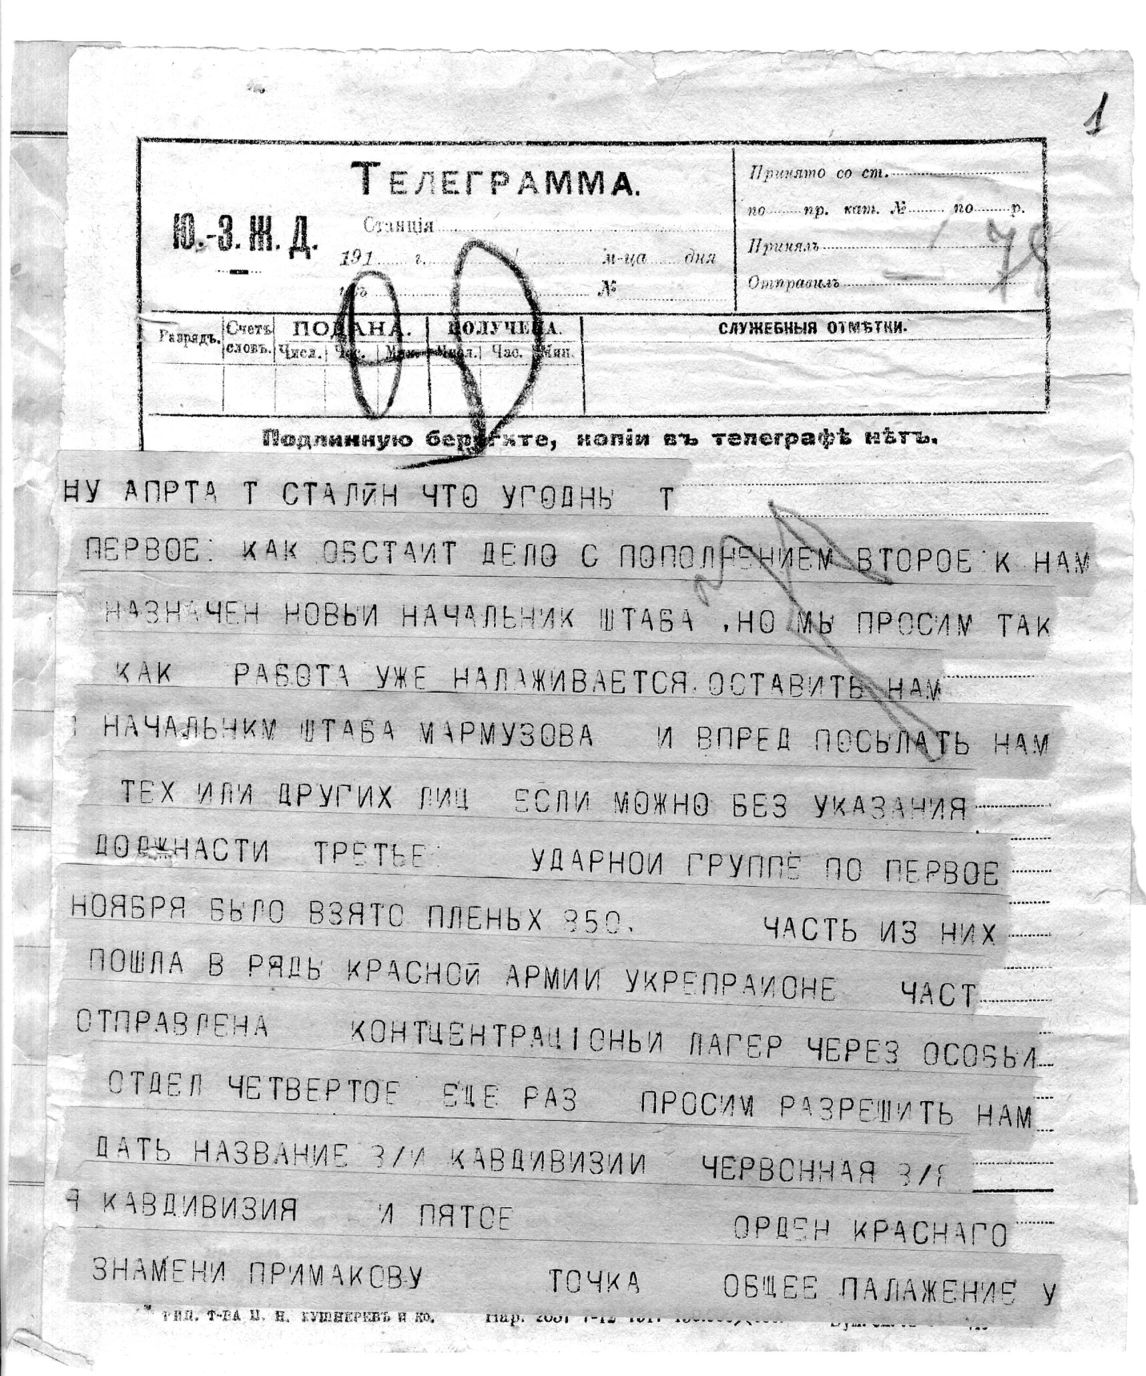 1
ТЕЛЕГРАММА.
Ю.-З. Ж. Д.
Станція
191 г. м-ца дня
№
Принято со ст.
по пр. кат. № по р.
Принялъ
Отправилъ
78
Разрядъ. Счетъ словъ. ПОДАНА. ПОЛУЧЕНА. СЛУЖЕБНЫЯ ОТМѢТКИ.
Числ. Час. Мин. Числ. Час. Мин.
Подлинную берегите, копіи въ телеграфѣ нѣтъ.
НУ АПРТА Т СТАЛИН ЧТО УГОДНЬ Т
ПЕРВОЕ: КАК ОБСТАИТ ДЕЛО С ПОПОЛНЕНИЕМ ВТОРОЕ К НАМ
НАЗНАЧЕН НОВЫИ НАЧАЛЬНИК ШТАБА , НО МЫ ПРОСИМ ТАК
КАК РАБОТА УЖЕ НАЛАЖИВАЕТСЯ. ОСТАВИТЬ НАМ
НАЧАЛЬЧКМ ШТАБА МАРМУЗОВА И ВПРЕД ПОСЫЛАТЬ НАМ
ТЕХ ИЛИ ДРУГИХ ЛИЦ ЕСЛИ МОЖНО БЕЗ УКАЗАНИЯ
ДОЛЖНАСТИ ТРЕТЬЕ УДАРНОИ ГРУППЕ ПО ПЕРВОЕ
НОЯБРЯ БЫЛО ВЗЯТО ПЛЕНЫХ 350. ЧАСТЬ ИЗ НИХ
ПОШЛА В РЯДЫ КРАСНОЙ АРМИИ УКРЕПРАИОНЕ ЧАСТ
ОТПРАВЛЕНА КОНТЦЕНТРАЦІОНЫИ ЛАГЕР ЧЕРЕЗ ОСОБЫИ
ОТДЕЛ ЧЕТВЕРТОЕ ЕЩЕ РАЗ ПРОСИМ РАЗРЕШИТЬ НАМ
ДАТЬ НАЗВАНИЕ 3/И КАВДИВИЗИИ ЧЕРВОННАЯ 3/Я
Я КАВДИВИЗИЯ И ПЯТОЕ ОРДЕН КРАСНАГО
ЗНАМЕНИ ПРИМАКОВУ ТОЧКА ОБЩЕЕ ПАЛАЖЕНИЕ У
Т-ВА И. Н. КУШНЕРЕВЪ И КО.